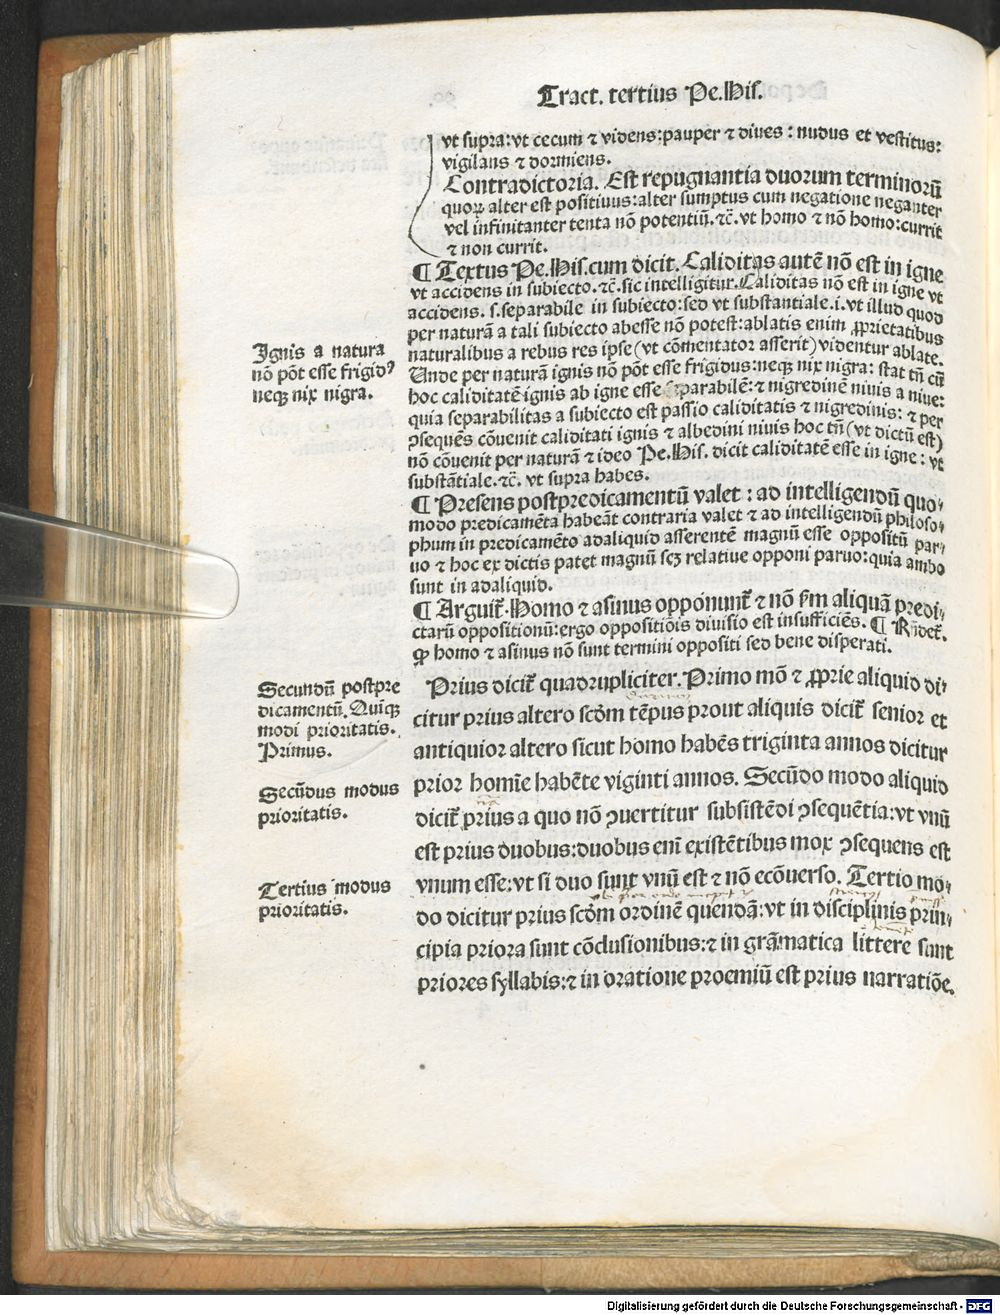 Tract. tertius Pe. His.
vt supra: vt cecum ⁊ videns: pauper ⁊ diues: nudus et vestitus:
vigilans ⁊ dormiens.
Contradictoria. Est repugnantia duorum terminorū
quoꝝ alter est positiuus: alter sumptus cum negatione neganter
vel infinitanter tenta nō potentiū. ⁊c̄. vt homo ⁊ nō homo: currit
⁊ non currit.
¶ Textus Pe. His. cum dicit. Caliditas autē nō est in igne
vt accidens in subiecto. ⁊c̄. sic intelligitur. Caliditas nō est in igne vt
accidens. s. separabile in subiecto: sed vt substantiale .i. vt illud quod
per naturā a tali subiecto abesse nō potest: ablatis enim ꝓprietatibus
naturalibus a rebus res ipse (vt cōmentator asserit) videntur ablate.
Ignis a natura
nō pōt esse frigidꝰ
neqꝫ nix nigra.
Unde per naturā ignis nō pōt esse frigidus: neqꝫ nix nigra: stat tn̄ cū
hoc caliditatē ignis ab igne esse separabilē: ⁊ nigredinē niuis a niue:
quia separabilitas a subiecto est passio caliditatis ⁊ nigredinis: ⁊ per
ꝯsequēs cōuenit caliditati ignis ⁊ albedini niuis hoc tn̄ (vt dictū est)
nō cōuenit per naturā ⁊ ideo Pe. His. dicit caliditatē esse in igne: vt
substātiale. ⁊c̄. vt supra habes.
¶ Presens postpredicamentū valet: ad intelligendū quo⸗
modo predicamēta habeāt contraria valet ⁊ ad intelligendū philoso⸗
phum in predicamēto adaliquid asserentē magnū esse oppositū par⸗
uo ⁊ hoc ex dictis patet magnū scꝫ relatiue opponi paruo: quia ambo
sunt in adaliquid.
¶ Arguit̄. Homo ⁊ asinus opponunt̄ ⁊ nō ẜm aliquā predi⸗
ctarū oppositionū: ergo oppositiōis diuisio est insufficiēs. ¶ Rn̄det̄.
ꝙ homo ⁊ asinus nō sunt termini oppositi sed bene disperati.
Secundū postpre
dicamentū. Quīqꝫ
modi prioritatis.
Primus.
Prius dicit̄ quadrupliciter. Primo mō ⁊ ꝓprie aliquid di⸗
citur prius altero scd̄m tēpus prout aliquis dicit̄ senior et
antiquior altero sicut homo habēs triginta annos dicitur
prior homīe habēte viginti annos. Secūdo modo aliquid
Secūdus modus
prioritatis.
dicit̄ prius a quo nō ꝯuertitur subsistēdi ꝯsequētia: vt vnū
est prius duobus: duobus enī existētibus mox ꝯsequens est
vnum esse: vt si duo sunt vnū est ⁊ nō ecōuerso. Tertio mo⸗
Tertius modus
prioritatis.
do dicitur prius scd̄m ordinē quendā: vt in disciplinis prin⸗
cipia priora sunt cōclusionibus: ⁊ in grāmatica littere sunt
priores syllabis: ⁊ in oratione proemiū est prius narratiōe.
Digitalisierung gefördert durch die Deutsche Forschungsgemeinschaft - DFG